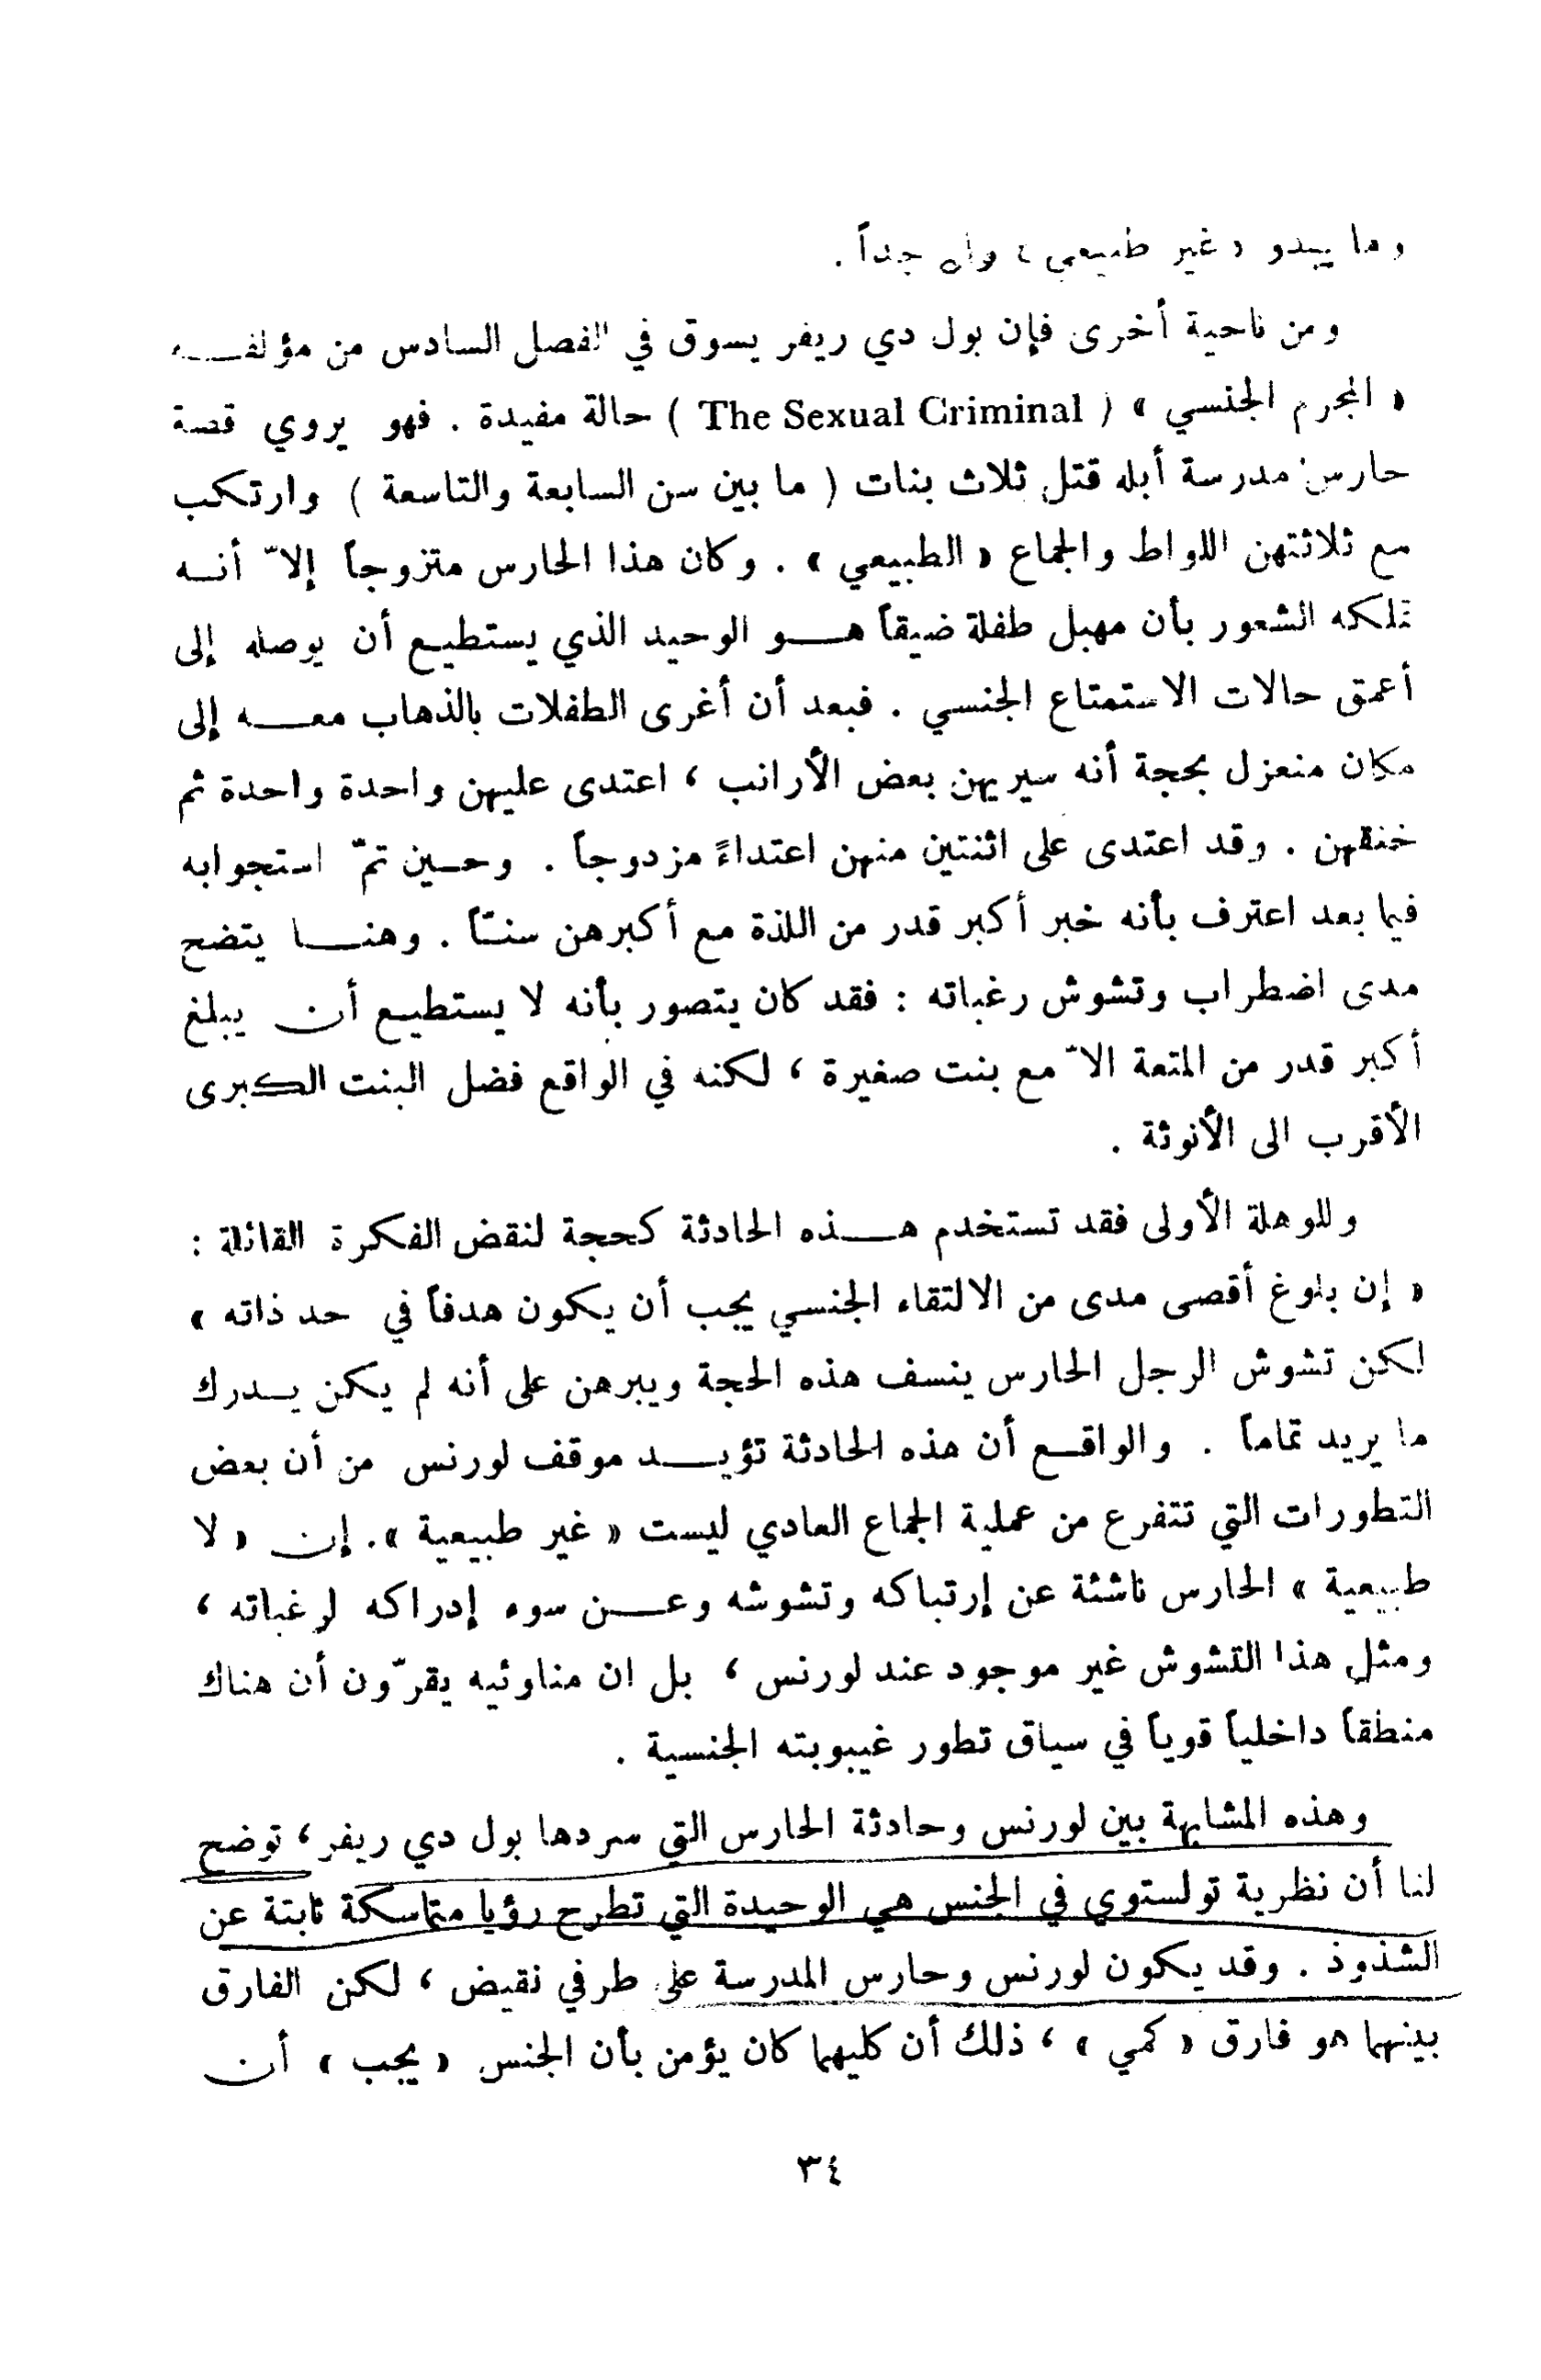 وما يبدو « غير طبيعي » جداً .
ومن ناحية أخرى فإن بول دي ريفر يسوق في الفصل السادس من مؤلفه
« المجرم الجنسي » ( The Sexual Criminal ) حالة مفيدة . فهو يروي قصة
حارس مدرسة أبله قتل ثلاث بنات ( ما بين سن السابعة والتاسعة ) وارتكب
مع ثلاثتهن اللواط والجماع « الطبيعي » . وكان هذا الحارس متزوجاً إلاّ أنه
تملكه الشعور بأن مهبل طفلة ضيقاً هو الوحيد الذي يستطيع أن يوصله إلى
أعمق حالات الاستمتاع الجنسي . فبعد أن أغرى الطفلات بالذهاب معه إلى
مكان منعزل بحجة أنه سيريهن بعض الأرانب ، اعتدى عليهن واحدة واحدة ثم
خنقهن . وقد اعتدى على اثنتين منهن اعتداءً مزدوجاً . وحين تمّ استجوابه
فيما بعد اعترف بأنه خبر أكبر قدر من اللذة مع أكبرهن سنّاً . وهنا يتضح
مدى اضطراب وتشوش رغباته : فقد كان يتصور بأنه لا يستطيع أن يبلغ
أكبر قدر من المتعة الاّ مع بنت صغيرة ، لكنه في الواقع فضل البنت الكبرى
الأقرب الى الأنوثة .
وللوهلة الأولى فقد تستخدم هذه الحادثة كحجة لنقض الفكرة القائلة :
« إن بلوغ أقصى مدى من الالتقاء الجنسي يجب أن يكون هدفاً في حد ذاته »
لكن تشوش الرجل الحارس ينسف هذه الحجة ويبرهن على أنه لم يكن يدرك
ما يريد تماماً . والواقع أن هذه الحادثة تؤيد موقف لورنس من أن بعض
التطورات التي تتفرع من عملية الجماع العادي ليست « غير طبيعية ». إن « لا
طبيعية » الحارس ناشئة عن إرتباكه وتشوشه وعن سوء إدراكه لرغباته ،
ومثل هذا التشوش غير موجود عند لورنس ، بل ان مناوئيه يقرّون أن هناك
منطقاً داخلياً قوياً في سياق تطور غيبوبته الجنسية .
وهذه المشابهة بين لورنس وحادثة الحارس التي سردها بول دي ريفر ، توضح
لنا أن نظرية تولستوي في الجنس هي الوحيدة التي تطرح رؤيا متماسكة ثابتة عن
الشذوذ . وقد يكون لورنس وحارس المدرسة على طرفي نقيض ، لكن الفارق
بينهما هو فارق « كمي » ، ذلك أن كليهما كان يؤمن بأن الجنس « يجب » أن
٣٤